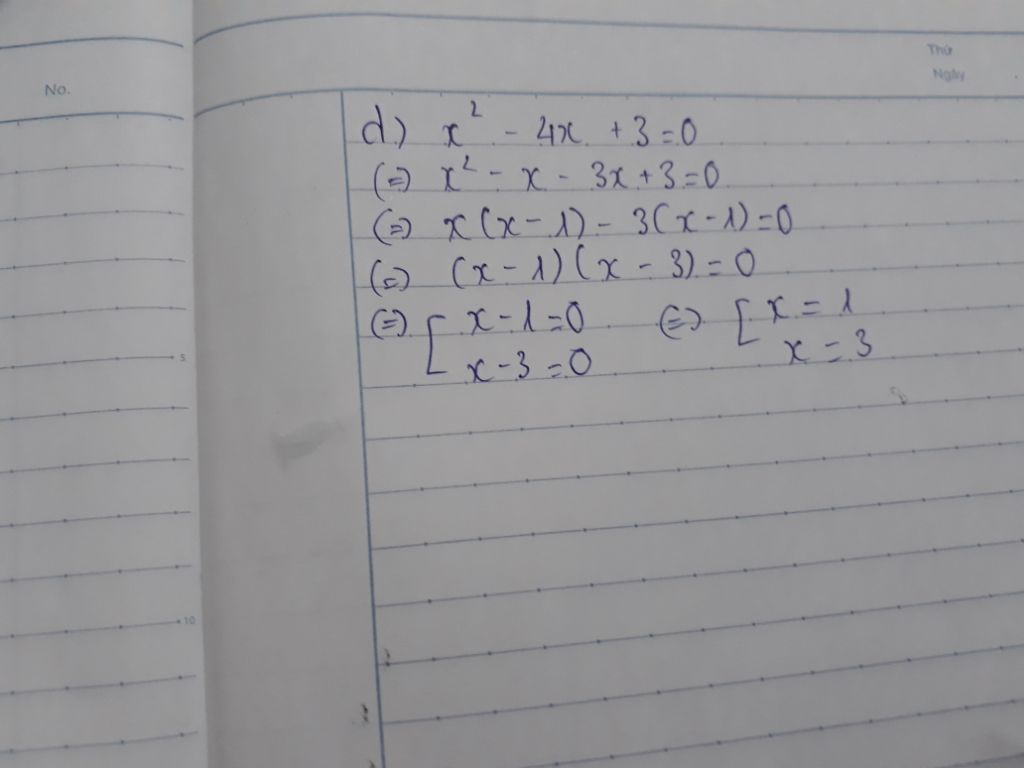 No.
Thứ
Ngày
d.) x² - 4x + 3 = 0
(=) x² - x - 3x + 3 = 0
(=) x(x - 1) - 3(x - 1) = 0
(=) (x - 1)(x - 3) = 0
(=) [ x - 1 = 0 (=) [ x = 1
x - 3 = 0 x = 3
5
10